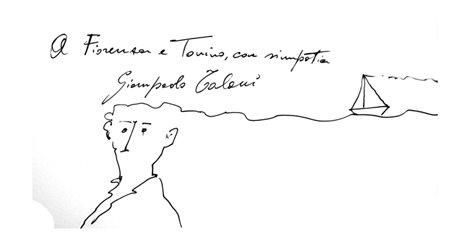 A Fiorenza e Tonino, con simpatia
Giampaolo Talani